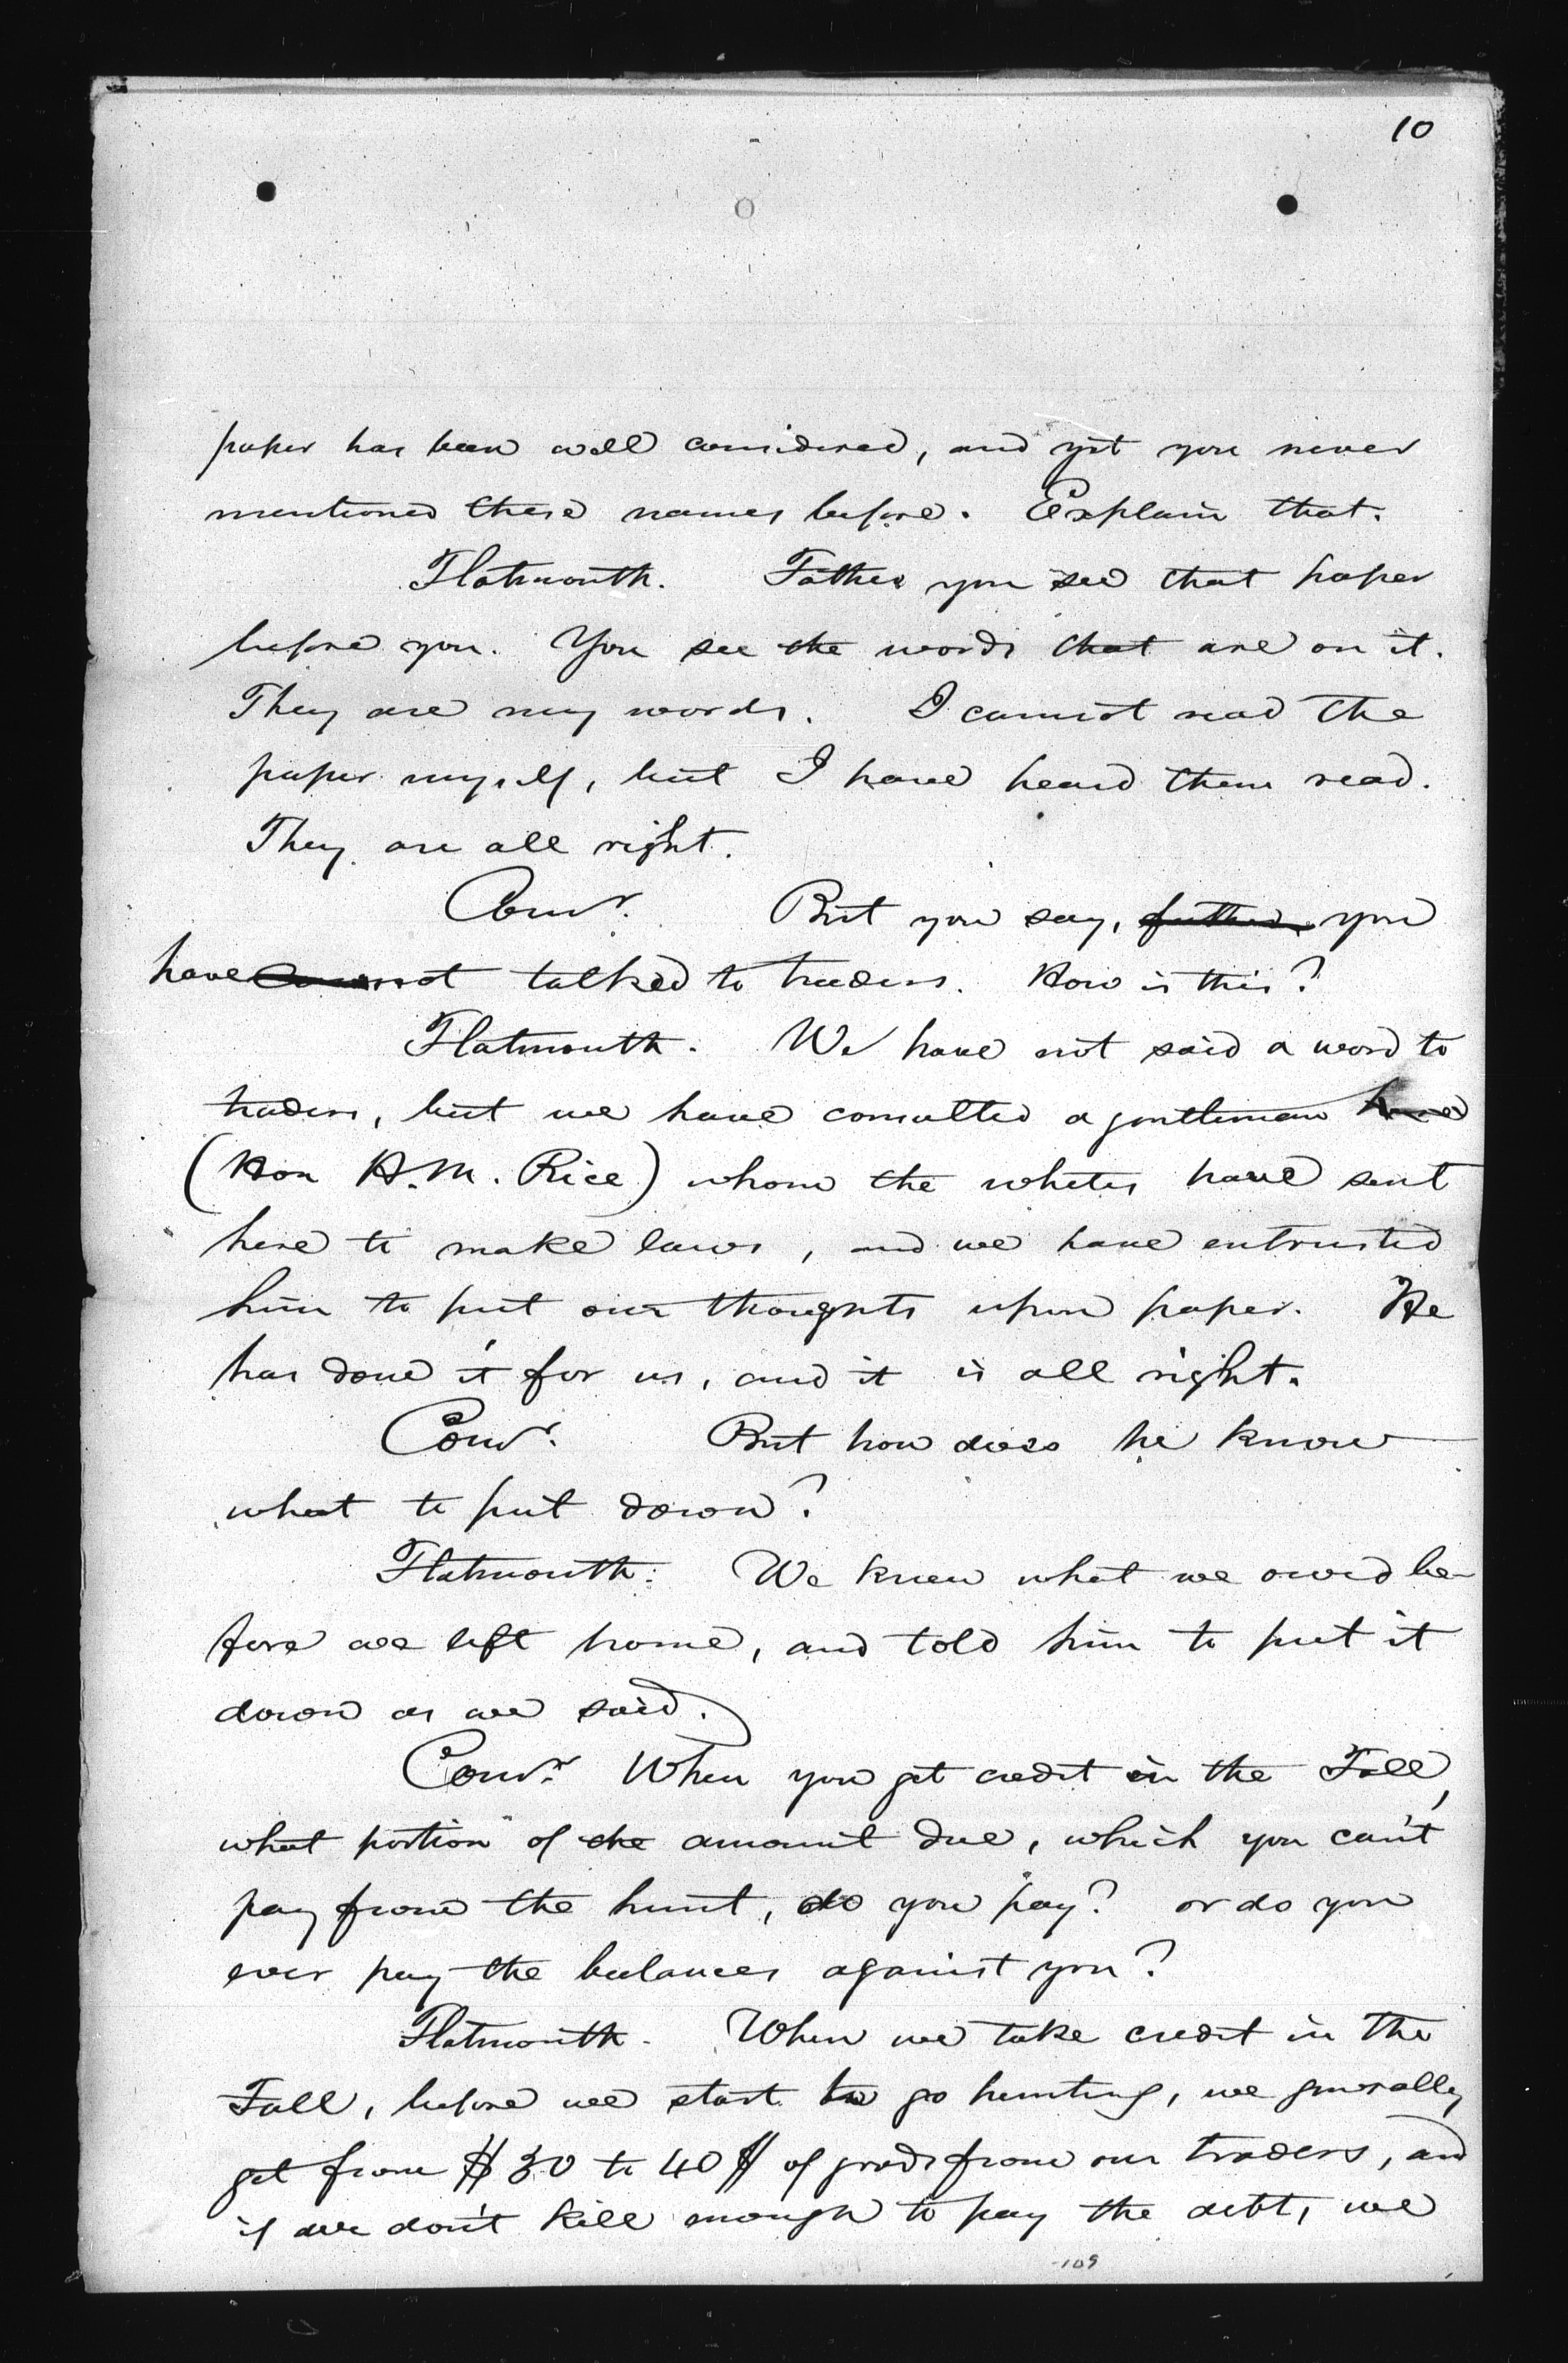 10
paper has been well considered, and yet you never
mentioned these names before. Explain that.
Flatmouth. Father you see that paper
before you. You see the words that are on it.
They are my words. I cannot read the
paper myself, but I have heard them read.
They are all right.
Comr. But you say, father, you
have not talked to traders. How is this?
Flatmouth. We have not said a word to
traders, but we have consulted a gentleman here
(Hon H.M. Rice) whom the whites have sent
here to make laws, and we have entrusted
him to put our thoughts upon paper. He
has done it for us, and it is all right.
Comr. But how does he know
what to put down?
Flatmouth. We knew what we owed be-
fore we left home, and told him to put it
down as we said.
Comr. When you get credit in the Fall,
what portion of the amount due, which you can't
pay from the hunt, do you pay? or do you
ever pay the balances against you?
Flatmouth. When we take credit in the
Fall, before we start to go hunting, we generally
get from $30 to 40$ of goods from our traders, and
if we don't kill enough to pay the debt, we
109